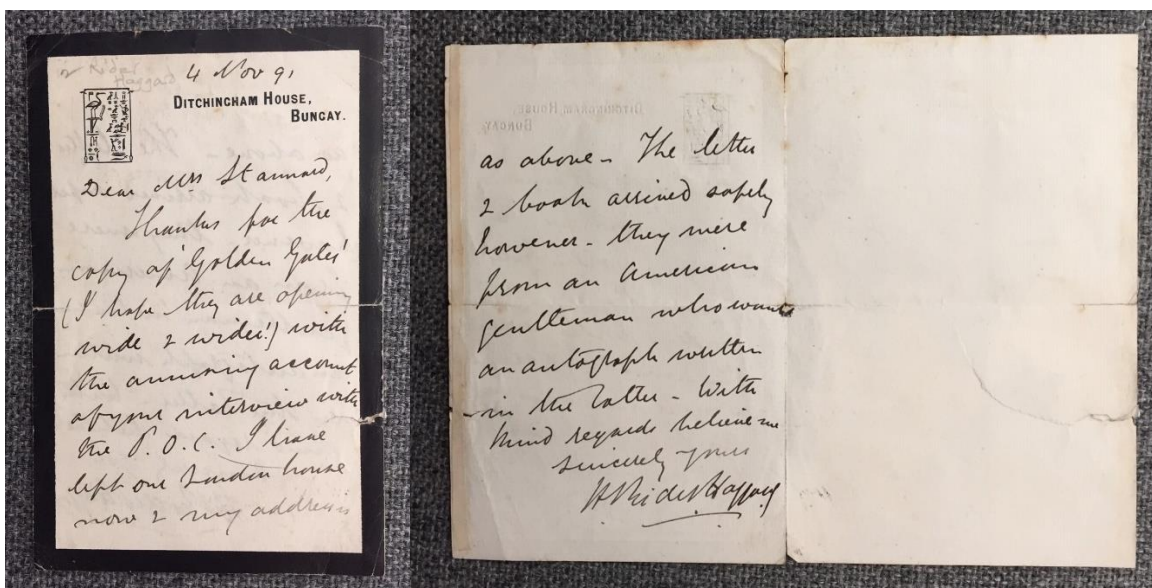 Rider
Haggard
4 Nov 91
DITCHINGHAM HOUSE,
BUNGAY.
Dear Mrs Stannard,
Thanks for the
copy of 'Golden Gates'
(I hope they are opening
wide & wider!) with
the amusing account
of your interview with
the P.O.C. I have
left our London house
now & my address is
as above - The letter
& book arrived safely
however - they were
from an American
gentleman who wants
an autograph written
in the latter - With
kind regards believe me
sincerely yours
H Rider Haggard